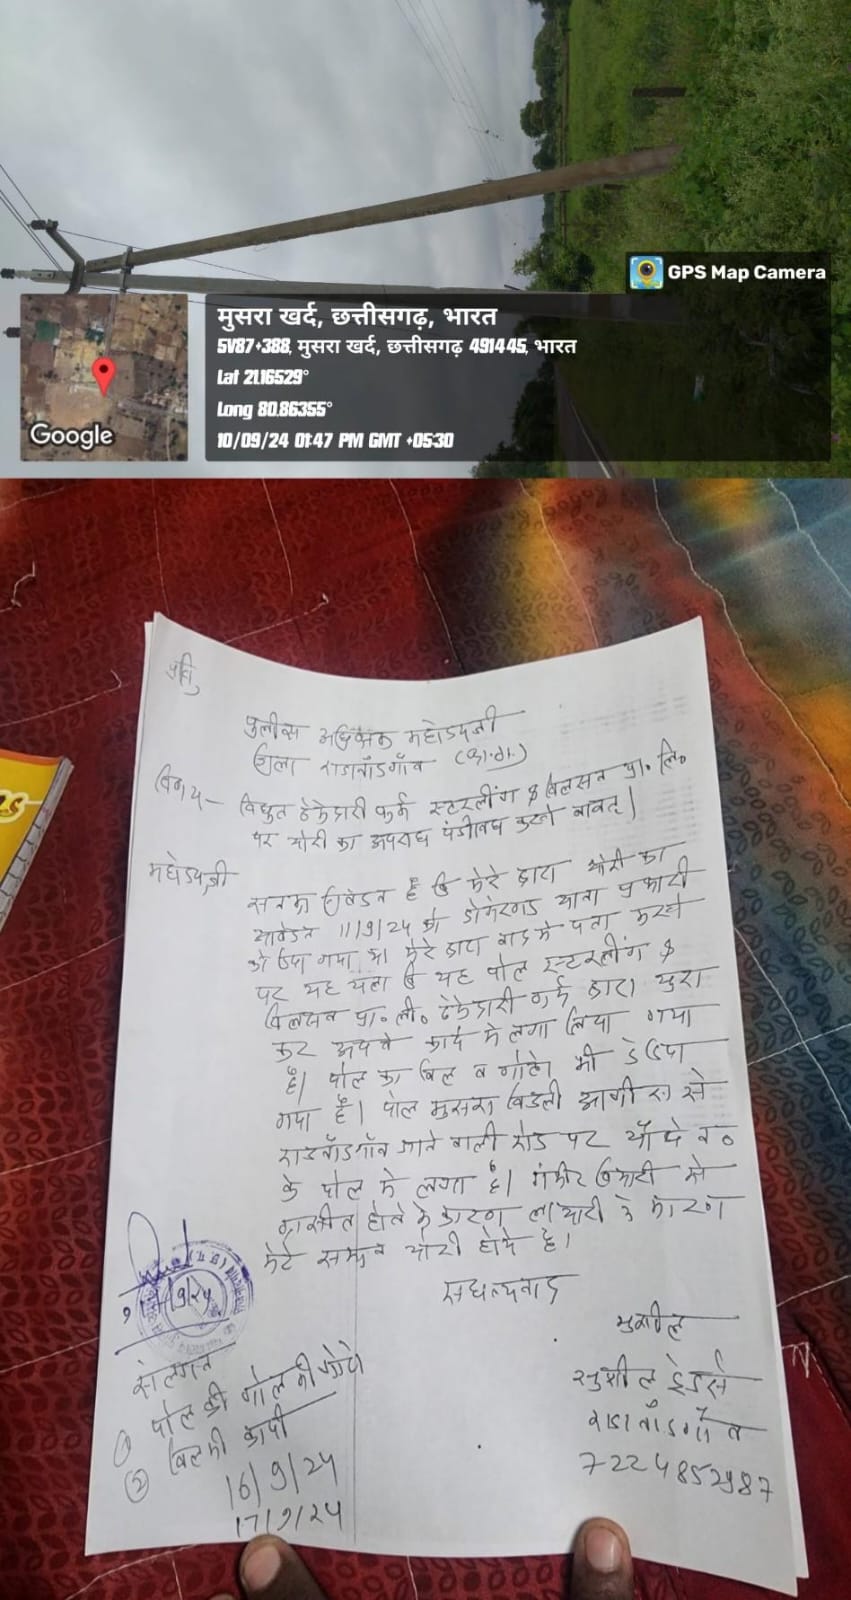 GPS Map Camera
मुसरा खर्द, छत्तीसगढ़, भारत
5V87+388, मुसरा खर्द, छत्तीसगढ़ 491445, भारत
Lat 21.16529°
Long 80.86355°
10/09/24 01:47 PM GMT +05:30
Google
प्रति,
पुलीस अधिक्षक महोदयजी
जिला राजनाँदगाँव (छ.ग.)
विषय - विधुत ठेकेदारी फर्म स्टरलींग & विलसन प्रा. लि.
पर चोरी का अपराध पंजीबध करने बाबत्।
महोदयजी
निवेदन है कि मेरे द्वारा चोरी का
आवेदन 11/9/24 को डोंगरगढ थाना प्रभारी
को दिया गया था मेरे द्वारा बाद मे पता करने
पर यह चला कि यह पोल स्टरलींग &
विलसन प्रा. ली. ठेकेदारी फर्म द्वारा चुरा
कर अपने कार्य मे लगा लिया गया
है। पोल का बिल व फोटो भी दे दिया
गया है। पोल मुसरा बिजली आफीस से
राजनाँदगाँव जाने वाली रोड पर
के पोल मे लगा है। गंभीर बिमारी से
ग्रासित होने के कारण लाचारी के कारण
मेरे चोरी होते है।
सधन्यवाद
सुशील
सुशील ट्रेडर्स
राजनाँदगाँव
7224852987
संलग्न
① पोल की
② बिल की कापी
16/9/24
17/9/24